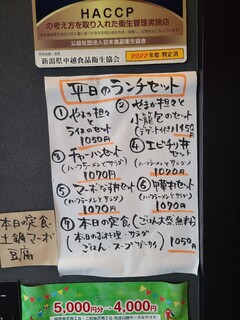 HACCP
の考え方を取り入れた衛生管理実施店
公益社団法人日本食品衛生協会
新潟県中越食品衛生協会
2022年度 判定済
平日のランチセット
① やまの担々と
ライスのセット
1050円
② やまの担々と
小籠包のセット
(デザート付) 1150円
③ チャーハンセット
(ハーフラーメンとサラダ)
1090円
④ エビチリ丼セット
(ハーフラーメンとサラダ)
1090円
⑤ マーボー丼セット
(ハーフラーメンとサラダ)
1090円
⑥ 中華丼セット
(ハーフラーメンとサラダ)
1090円
⑦ 本日の定食 (ごはん大盛無料)
本日のお料理・サラダ
ごはん・スープ・ザーサイ
1050円
本日の定食
土鍋マーボ
豆腐
5,000円分→4,000円